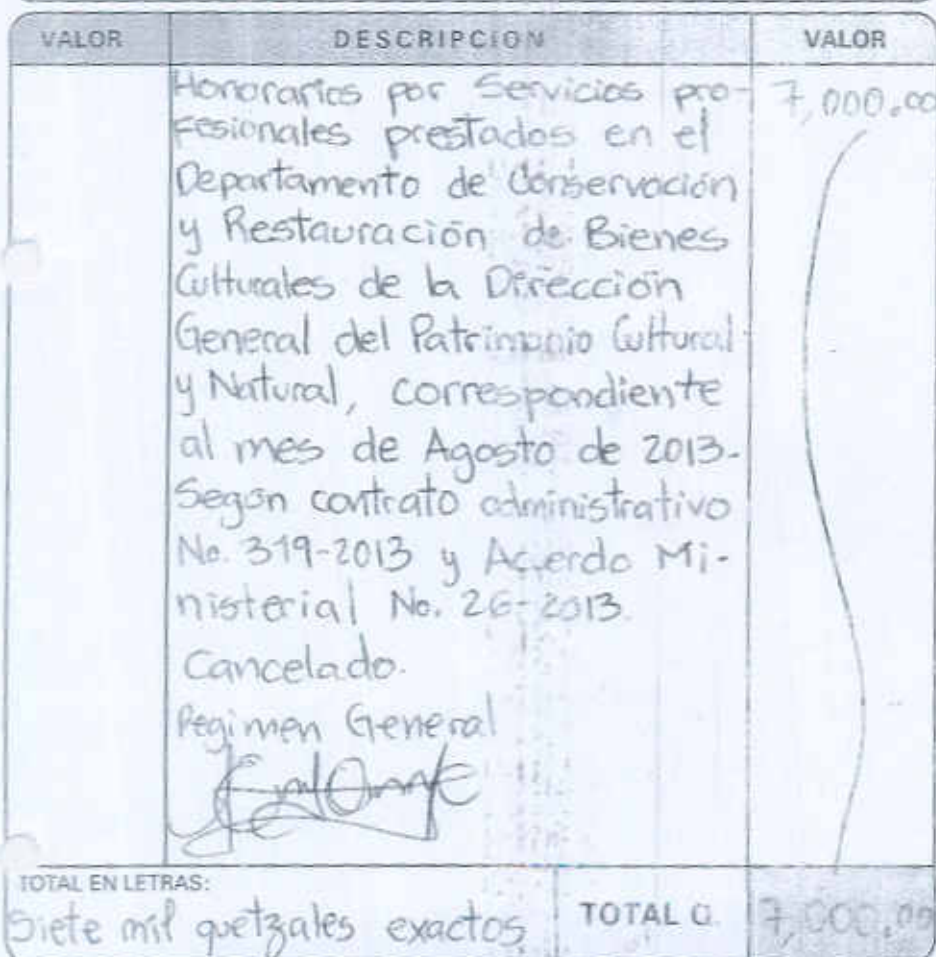 VALOR DESCRIPCION VALOR
Honorarios por Servicios pro- 7,000.00
fesionales prestados en el
Departamento de Conservación
y Restauración de Bienes
Culturales de la Dirección
General del Patrimonio Cultural
y Natural, correspondiente
al mes de Agosto de 2013.
Según contrato administrativo
No. 319-2013 y Acuerdo Mi-
nisterial No. 26-2013.
Cancelado.
Regimen General
TOTAL EN LETRAS:
Siete mil quetzales exactos TOTAL Q. 7,000.00